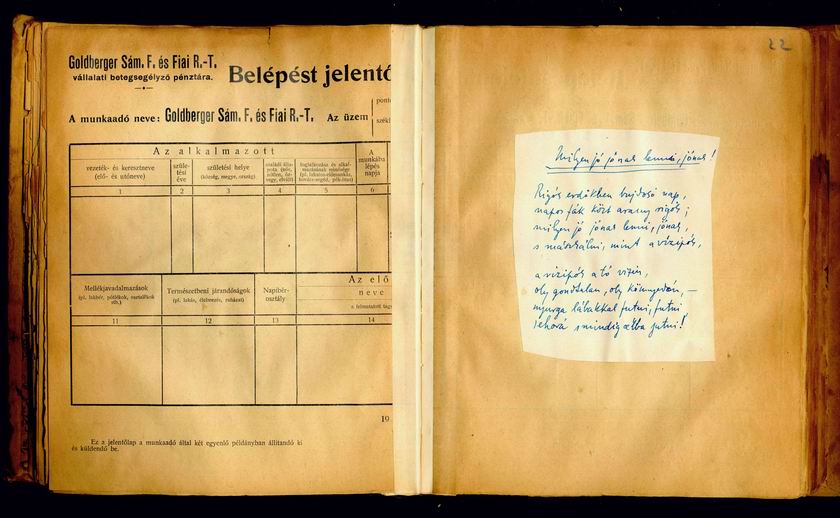 Goldberger Sám. F. és Fiai R.-T.
vállalati betegsegélyző pénztára.
Belépést jelentő
A munkaadó neve: Goldberger Sám. F. és Fiai R.-T. Az üzem
pont
szék
Az alkalmazott
vezeték- és keresztneve
(elő- és utóneve)
szüle-
tési
éve
születési helye
(község, megye, ország)
családi álla-
pota (nős,
nőtlen, öz-
vegy, elvált)
foglalkozása és alkal-
mazásának minősége
A
munkába
lépés
napja
1
2
3
4
5
6
Mellékjavadalmazások
(pl. lakbér, pótlékok, osztalékok
stb.)
Természetbeni járandóságok
(pl. lakás, élelmezés, ruházat)
Napibér-
osztály
Az elő
neve
a felmutatott tag
11
12
13
14
19
Ez a jelentőlap a munkaadó által két egyenlő példányban állítandó ki
és küldendő be.
22
Milyen jó jónak lenni, jónak!
Rigós erdőkben bujdosó nap,
napos fák közt arany rigók;
milyen jó jónak lenni, jónak,
s mászkálni, mint a vízipók,
a vízipók a tó vizén,
oly gondtalan, oly könnyedén, –
nyurga lábakkal futni, futni
sehová s mindig célba jutni!